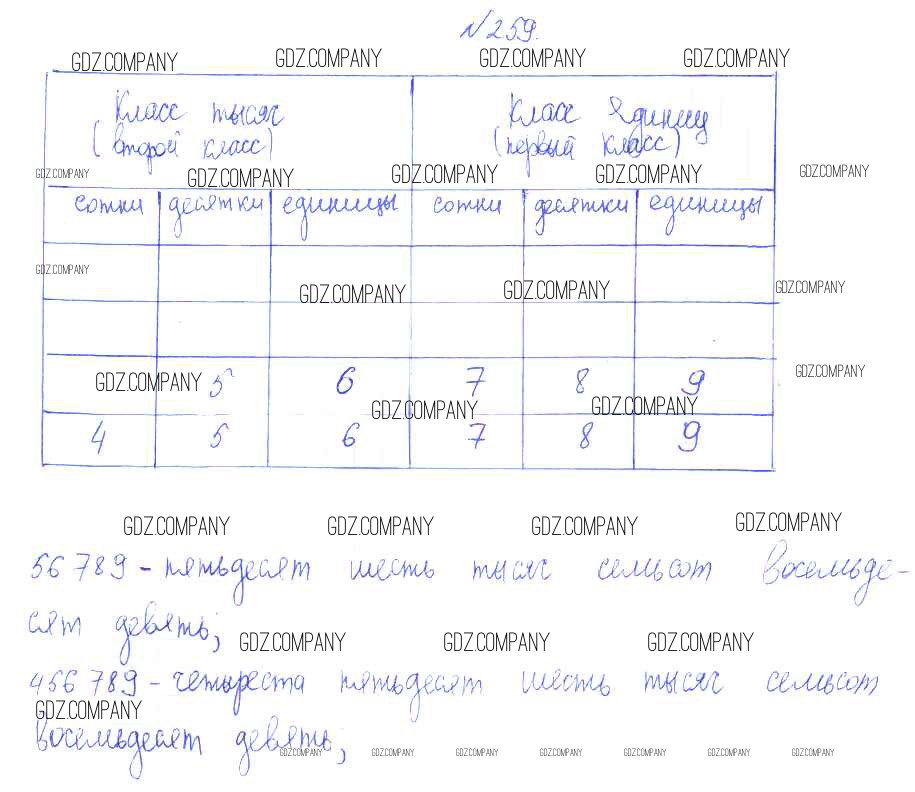 №259.
GDZ.COMPANY GDZ.COMPANY GDZ.COMPANY GDZ.COMPANY
Класс тысяч Класс единиц
(второй класс) (первый класс)
GDZ.COMPANY GDZ.COMPANY GDZ.COMPANY GDZ.COMPANY GDZ.COMPANY
сотни десятки единицы сотни десятки единицы
GDZ.COMPANY GDZ.COMPANY GDZ.COMPANY GDZ.COMPANY
GDZ.COMPANY 5 6 7 8 9 GDZ.COMPANY
GDZ.COMPANY GDZ.COMPANY
4 5 6 7 8 9
GDZ.COMPANY GDZ.COMPANY GDZ.COMPANY GDZ.COMPANY
56 789 - пятьдесят шесть тысяч семьсот восемьде-
сят девять;
GDZ.COMPANY GDZ.COMPANY GDZ.COMPANY
456 789 - четыреста пятьдесят шесть тысяч семьсот
GDZ.COMPANY
восемьдесят девять;
GDZ.COMPANY GDZ.COMPANY GDZ.COMPANY GDZ.COMPANY GDZ.COMPANY GDZ.COMPANY GDZ.COMPANY